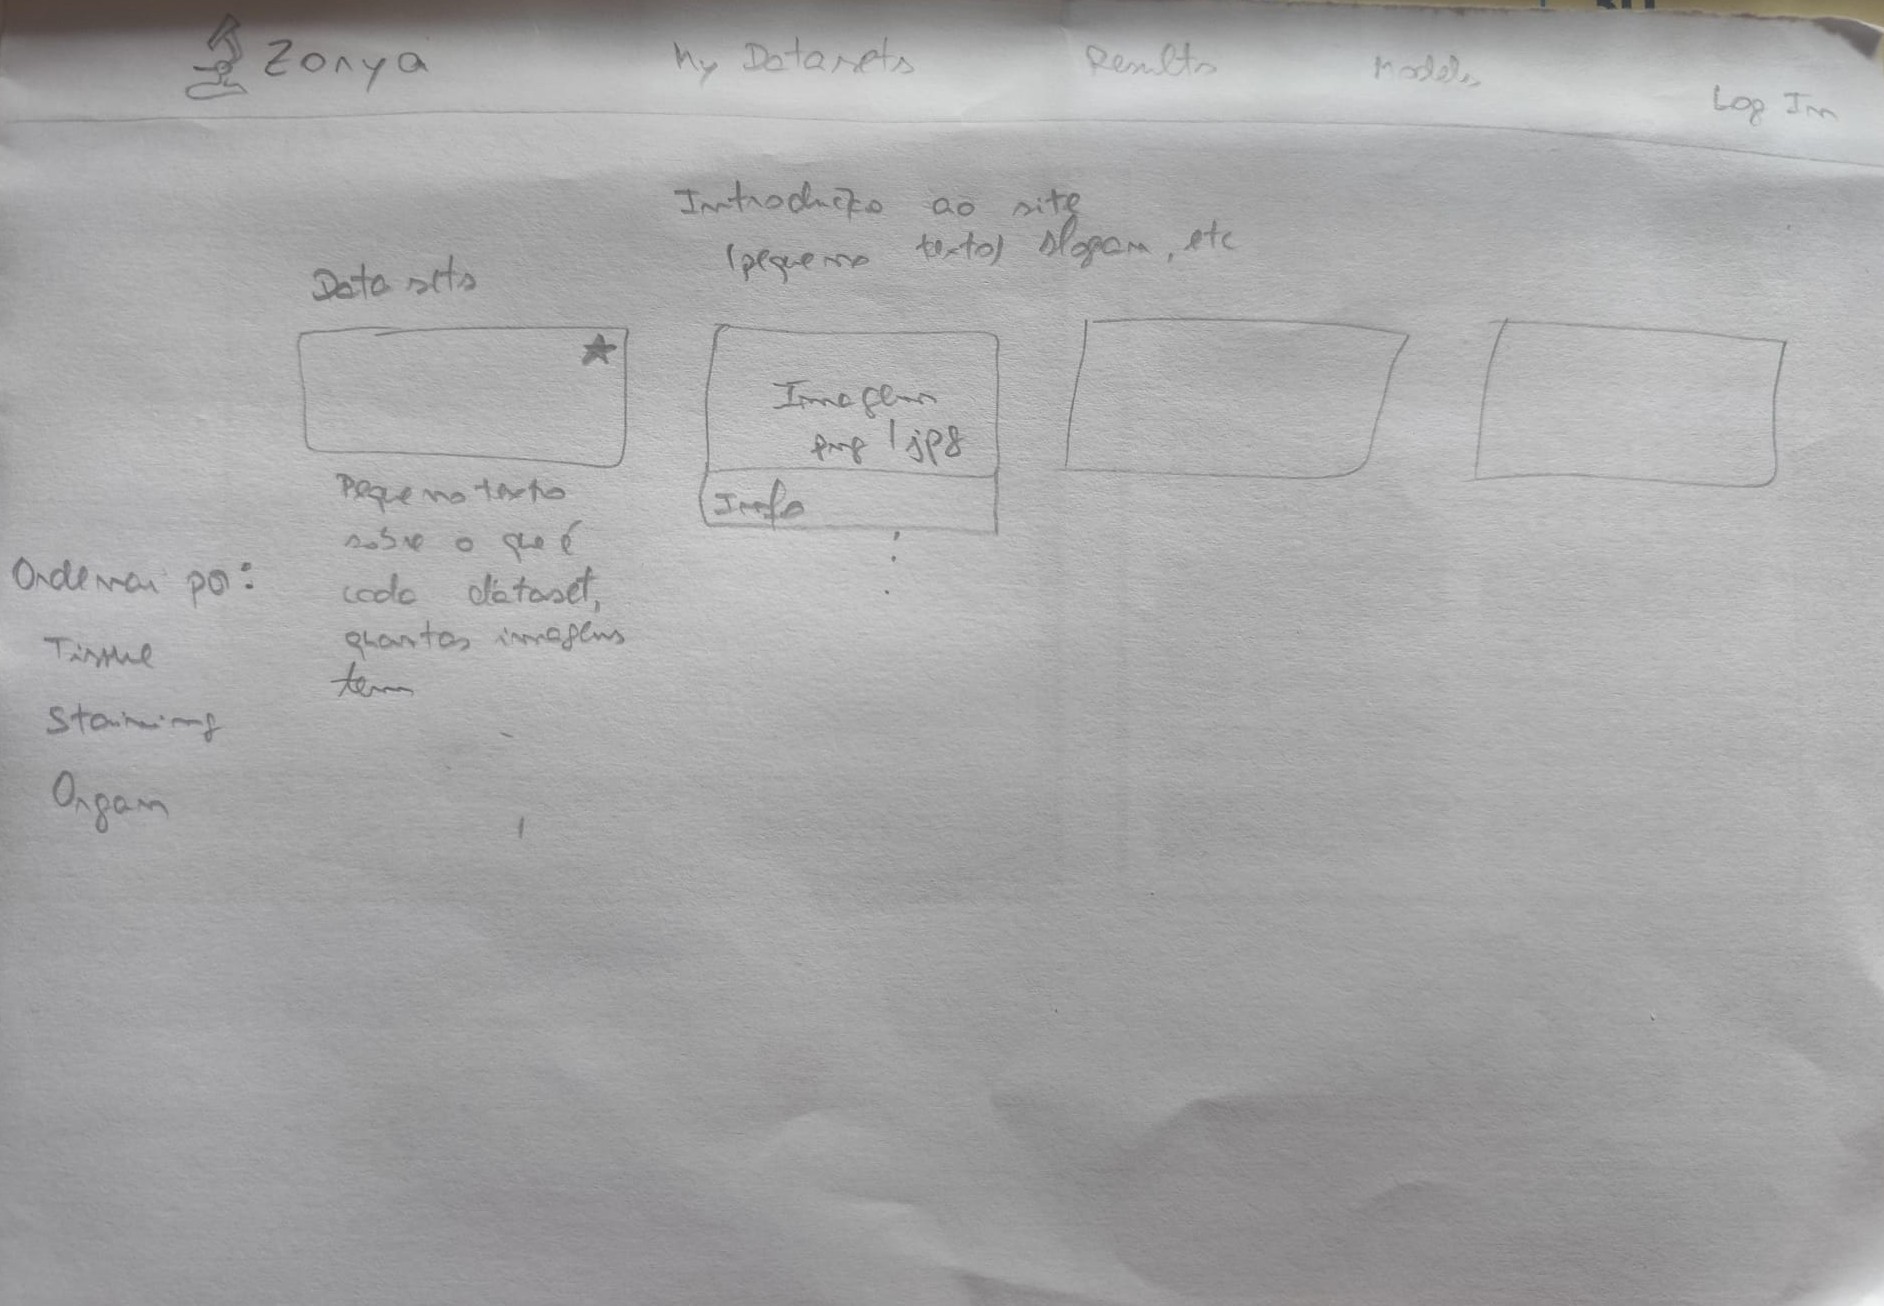 Zonya
My Datasets
Results
Models
Log In
Introdução ao site
(pequeno texto) slogan, etc
Datasets
Imagem
png / jpg
Info
Pequeno texto
sobre o que é
cada dataset,
quantas imagens
tem
Ordenar por:
Tissue
Staining
Organ